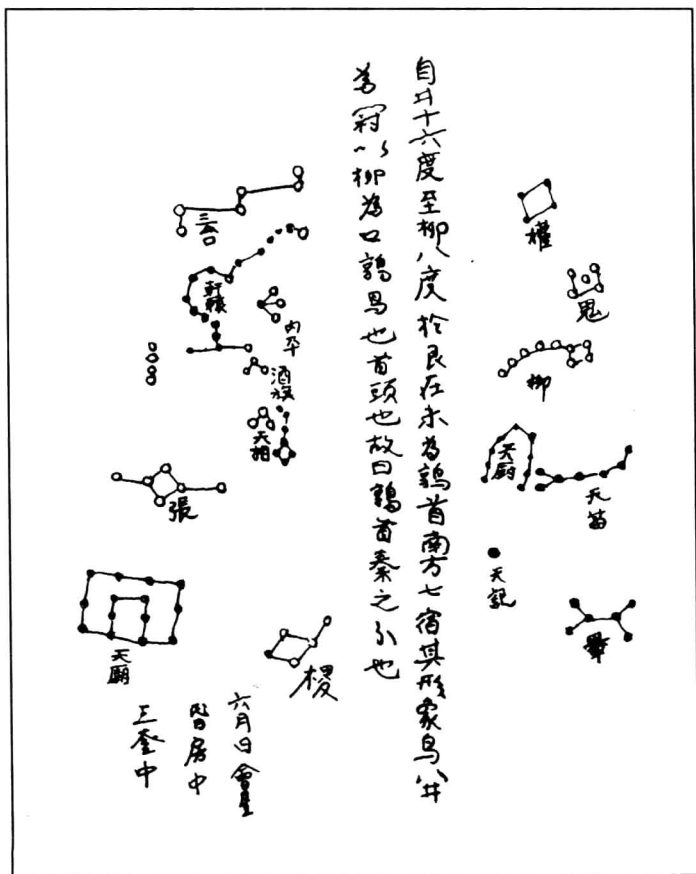 自井十六度至柳八度於辰在未為鶉首南方七宿其形象鳥以井
為冠以柳為口鶉鳥也首頭也故曰鶉首秦之分也
權
鬼
柳
天廚
天苗
天記
三台
軒轅
內平
酒旗
天相
張
天廟
稷
六月日會星
昏房中
旦奎中